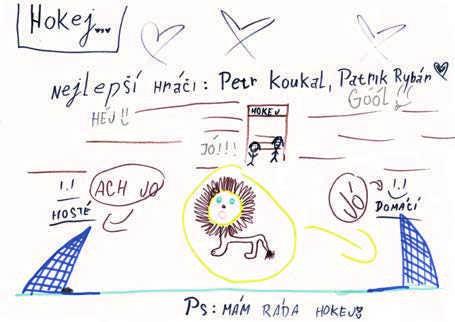 Hokej...
Nejlepší hráči: Petr Koukal, Patrik Rybár
HÉJ!!
Góól!!
HOKEJ
JÓ!!!
ACH JO
JÓ
HOSTÉ
DOMÁCÍ
Ps: MÁM RÁDA HOKEJ!!